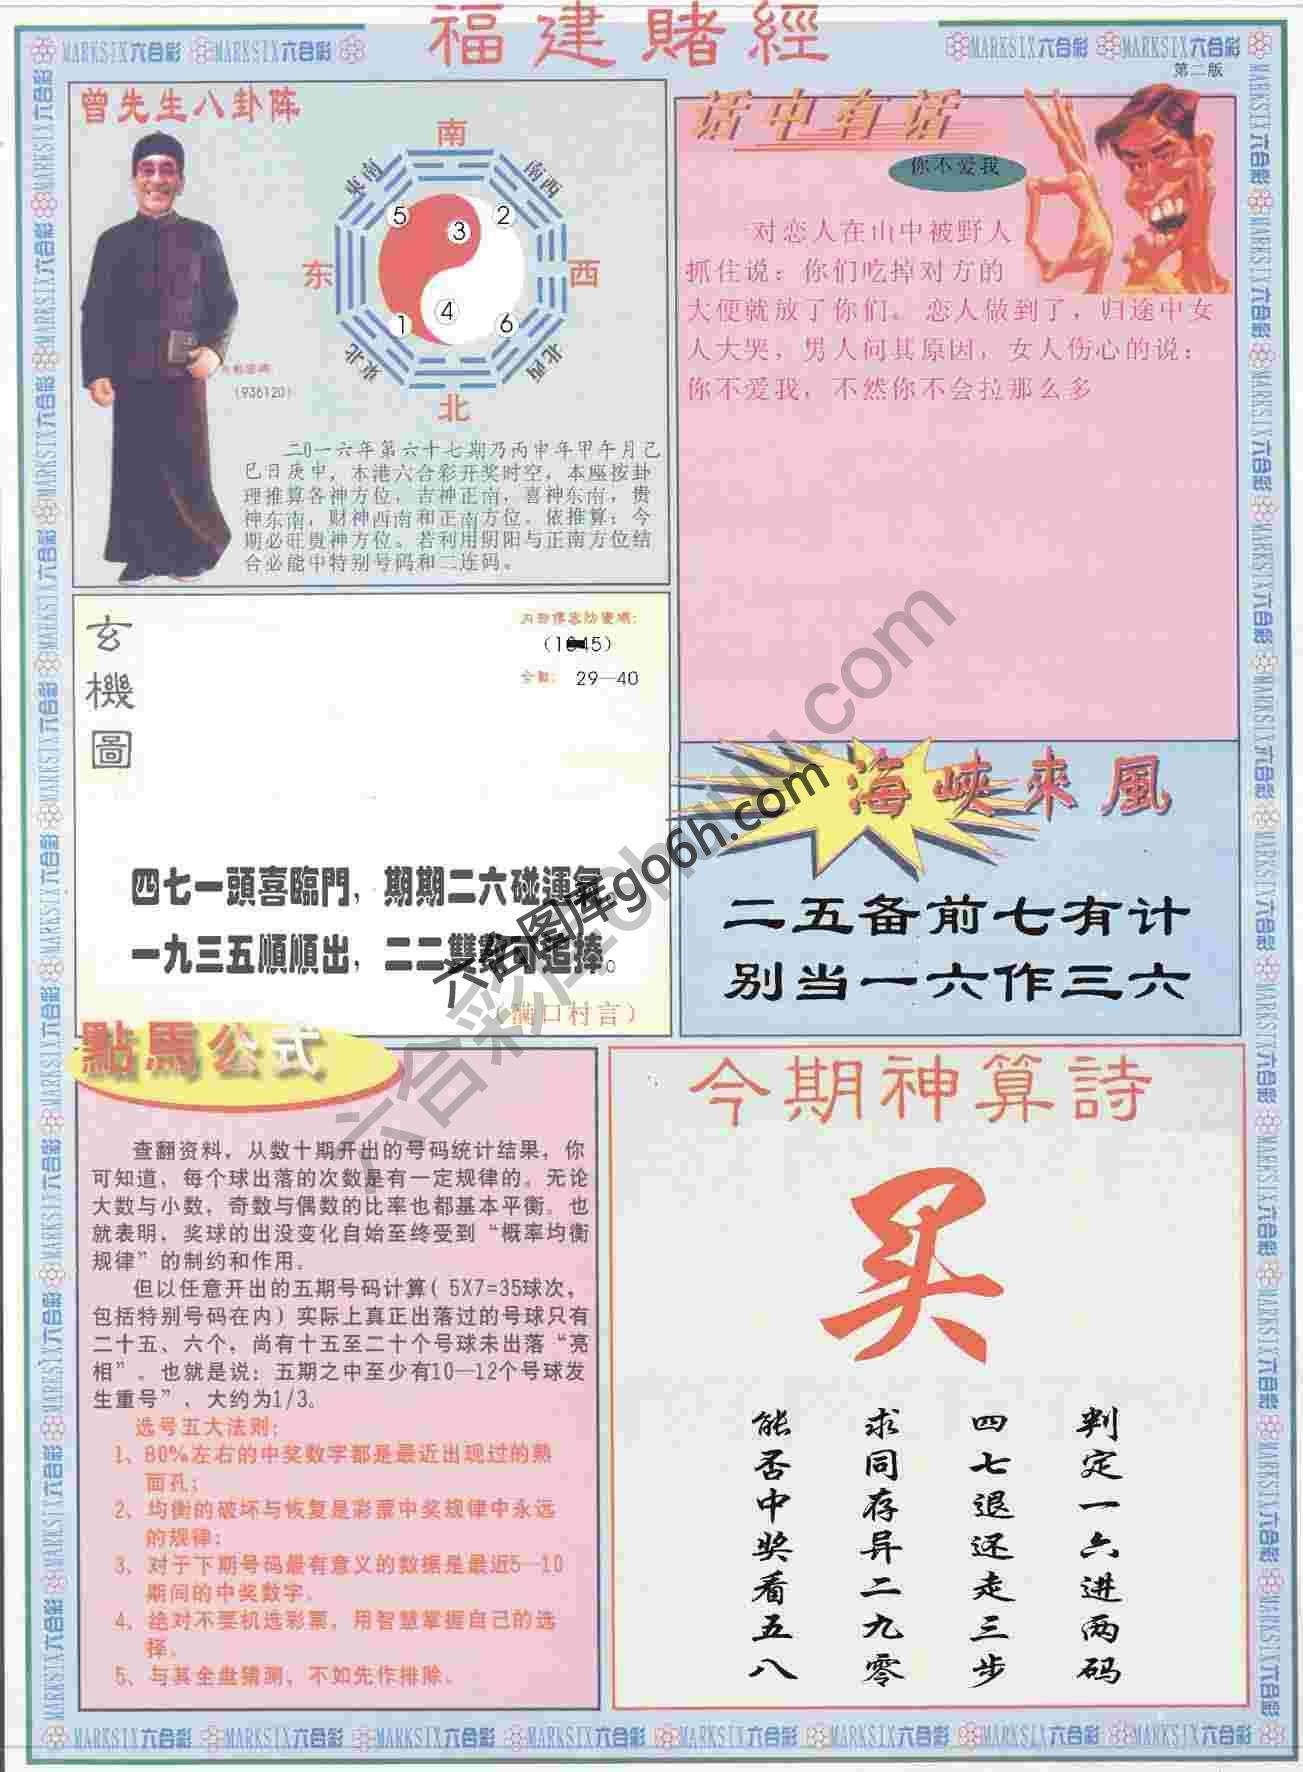 福建賭經
MARKSIX六合彩 MARKSIX六合彩
MARKSIX六合彩 MARKSIX六合彩
第二版
曾先生八卦阵
南
東南
南西
5
3
2
东
西
4
1
6
東北
北西
北
(936120)
二0一六年第六十七期乃丙申年甲午月己
巳日庚申，本港六合彩开奖时空，本座按卦
理推算各神方位，吉神正南，喜神东南，贵
神东南，财神西南和正南方位。依推算：今
期必旺贵神方位。若利用阴阳与正南方位结
合必能中特别号码和二连码。
话中有话
你不爱我
对恋人在山中被野人
抓住说：你们吃掉对方的
大便就放了你们。恋人做到了，归途中女
人大哭，男人问其原因，女人伤心的说：
你不爱我，不然你不会拉那么多
玄機圖
29—40
四七一頭喜臨門，期期二六碰運氣
一九三五順順出，二二雙數可追捧。
海峽來風
二五备前七有计
别当一六作三六
六合图库go6h.com
點馬公式
查翻资料，从数十期开出的号码统计结果，你
可知道，每个球出落的次数是有一定规律的。无论
大数与小数，奇数与偶数的比率也都基本平衡。也
就表明，奖球的出没变化自始至终受到“概率均衡
规律”的制约和作用。
但以任意开出的五期号码计算( 5X7=35球次，
包括特别号码在内) 实际上真正出落过的号球只有
二十五、六个，尚有十五至二十个号球未出落“亮
相”。也就是说：五期之中至少有10—12个号球发
生重号”，大约为1/3。
选号五大法则：
1、80%左右的中奖数字都是最近出现过的熟
面孔；
2、均衡的破坏与恢复是彩票中奖规律中永远
的规律；
3、对于下期号码最有意义的数据是最近5—10
期间的中奖数字。
4、绝对不要机选彩票，用智慧掌握自己的选
择。
5、与其全盘猜测，不如先作排除。
今期神算詩
买
判定一六进两码
四七退还走三步
求同存异二九零
能否中奖看五八